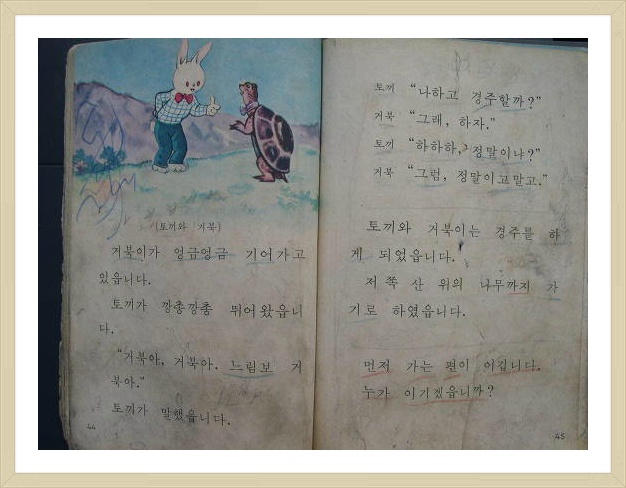 (토끼와 거북)
거북이가 엉금엉금 기어가고
있읍니다.
토끼가 깡충깡충 뛰어왔읍니
다.
“거북아, 거북아. 느림보 거
북아.”
토끼가 말했읍니다.
44
토끼 “나하고 경주할까?”
거북 “그래, 하자.”
토끼 “하하하, 정말이냐?”
거북 “그럼, 정말이고말고.”
토끼와 거북이는 경주를 하
게 되었읍니다.
저쪽 산 위의 나무까지 가
기로 하였읍니다.
먼저 가는 편이 이깁니다.
누가 이기겠읍니까?
45